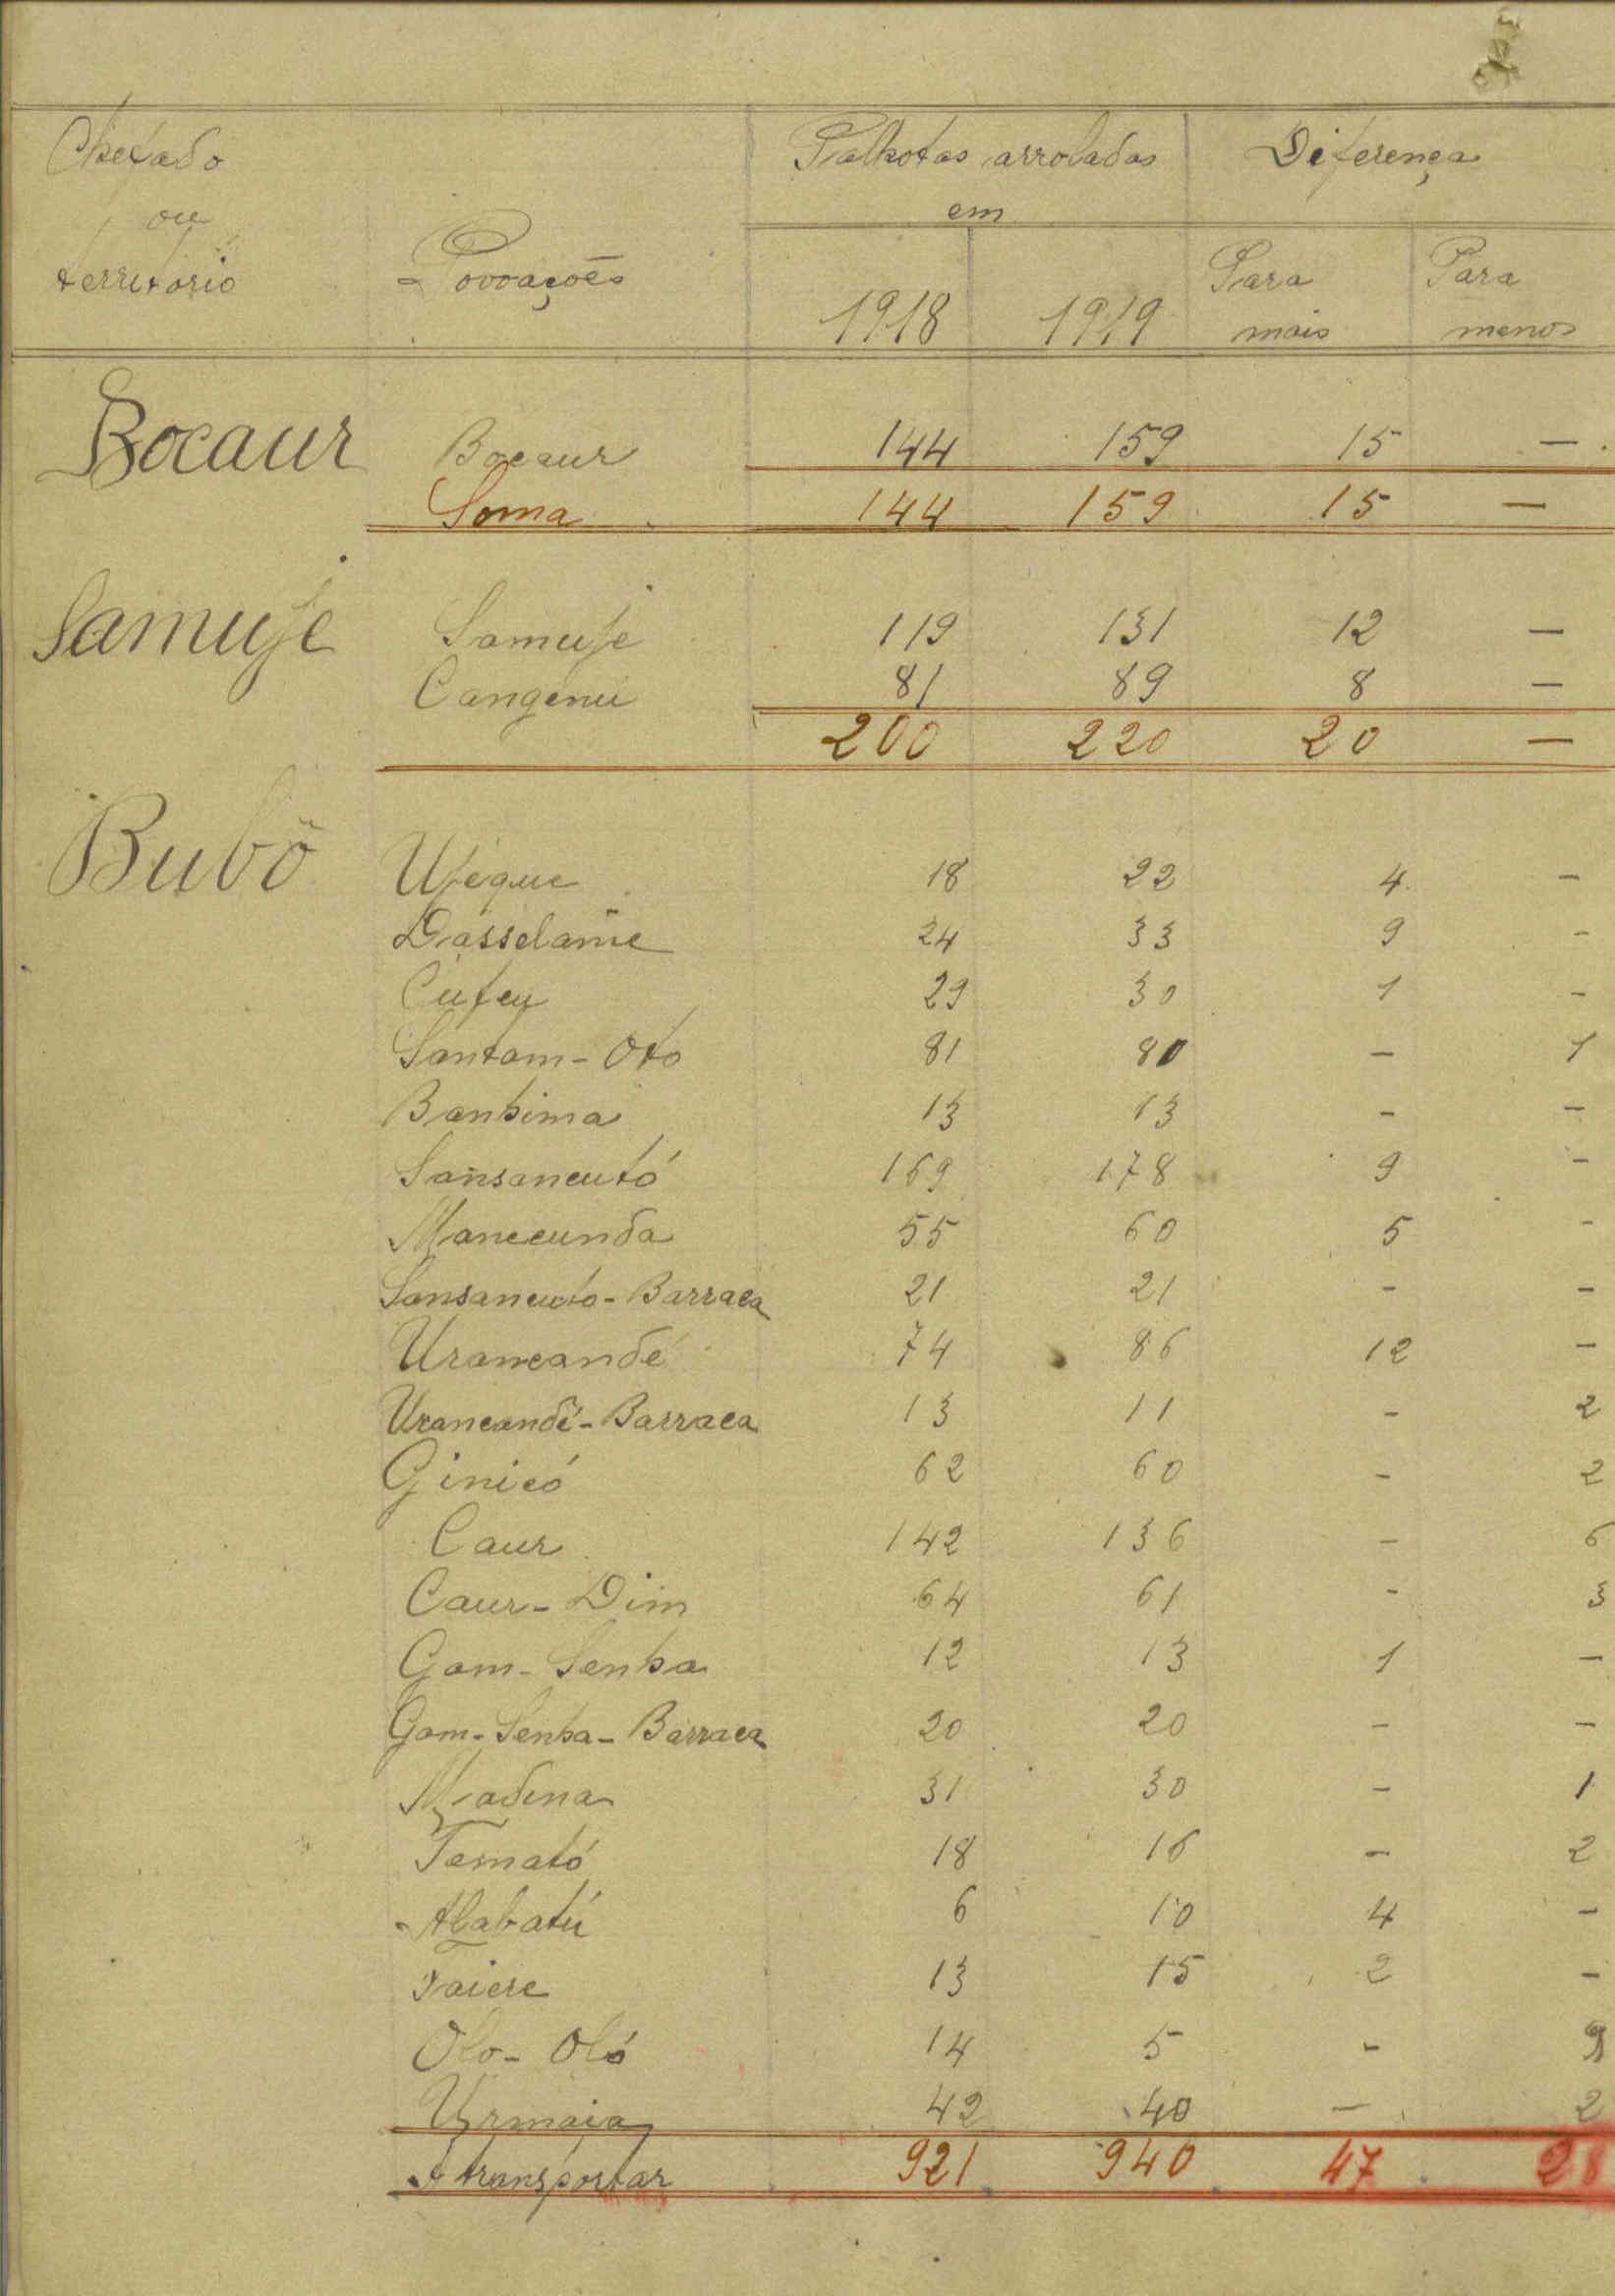 Chefado
ou
território
Povoações
Palhotas arroladas
em
Diferença
1918 1919 Para mais Para menos
Bocaur Bocaur 144 159 15 —
Soma 144 159 15 —
Samuje Samuje 119 131 12 —
Cangenú 81 89 8 —
200 220 20 —
Bubô Ufeque 18 22 4 -
Dasselame 24 33 9 -
Cufeu 29 30 1 -
Santam-Oto 81 80 - 1
Banhima 13 13 - -
Sansancutó 169 178 9 -
Mancunda 55 60 5 -
Sansancuto-Barraca 21 21 - -
Urancandé 74 86 12 -
Urancandé-Barraca 13 11 - 2
Ginicó 62 60 - 2
Caur 142 136 - 6
Caur-Dim 64 61 - 3
Gam-Senha 12 13 1 -
Gam-Senha-Barraca 20 20 - -
Madina 31 30 - 1
Tamató 18 16 - 2
Alabatú 6 10 4 -
Faiere 13 15 2 -
Olo-Oló 14 5 - 9
Urmaia 42 40 — 2
A transportar 921 940 47 28